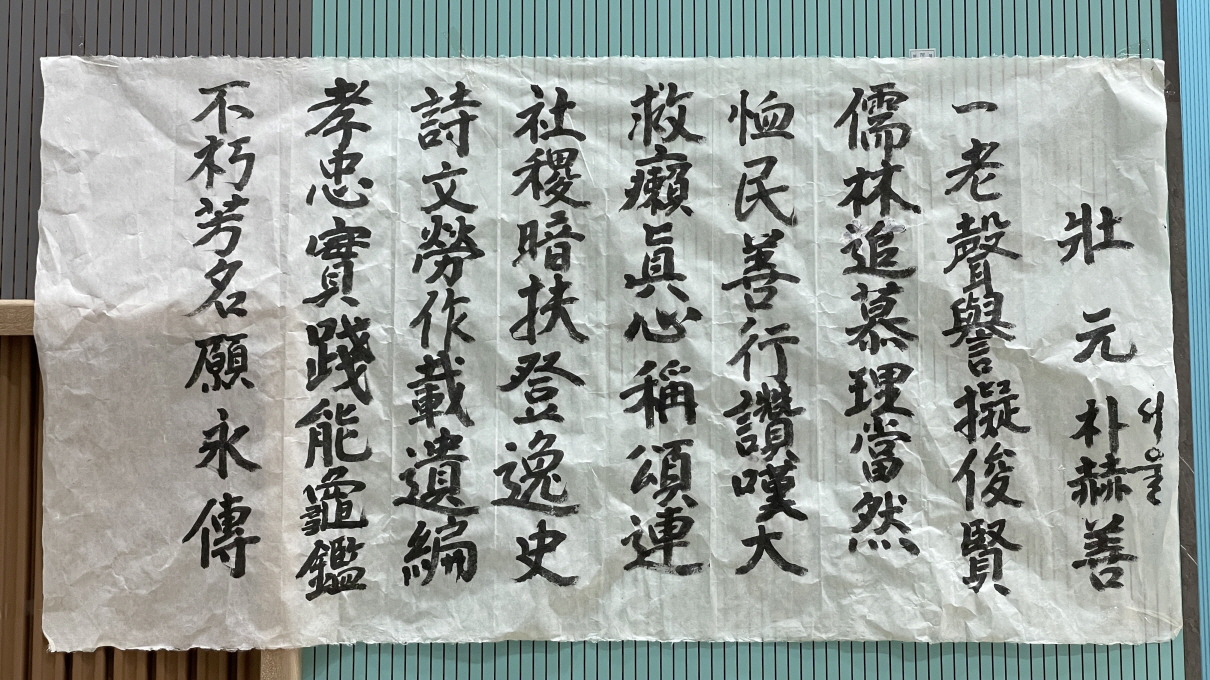 壯元 朴赫善
서울
一老聲譽擬俊賢
儒林追慕理當然
恤民善行讚嘆大
救癩眞心稱頌連
社稷暗扶登逸史
詩文勞作載遺編
孝忠實踐能龜鑑
不朽芳名願永傳